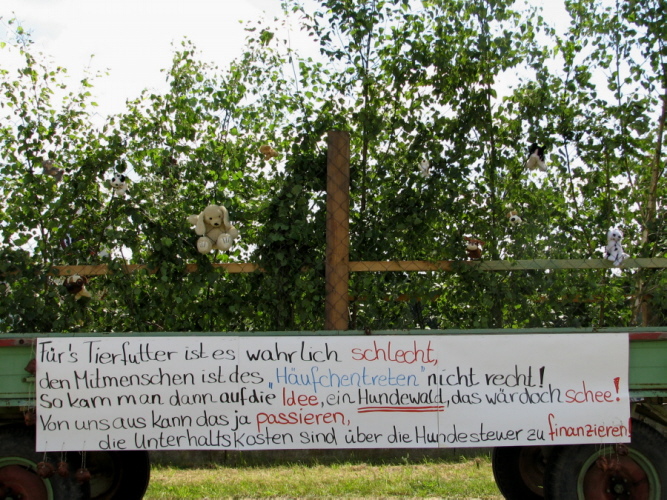 Für's Tierfutter ist es wahrlich schlecht,
den Mitmenschen ist des "Häufchentreten" nicht recht!
So kam man dann auf die Idee, ein Hundewald, das wär doch schee!
Von uns aus kann das ja passieren,
die Unterhaltskosten sind über die Hundesteuer zu finanzieren!